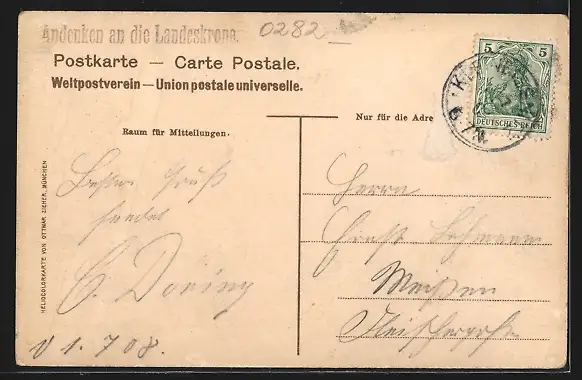 Andenken an die Landeskrone.
0282
Postkarte — Carte Postale.
Weltpostverein — Union postale universelle.
Raum für Mitteilungen.
Nur für die Adre
5 5
DEUTSCHES REICH
HELIOCOLORKARTE VON OTTMAR ZIEHER, MÜNCHEN
Besten Gruß
sendet
C. Doring
1. 7 08.
Herrn
Ernst Lehmann
Meißen